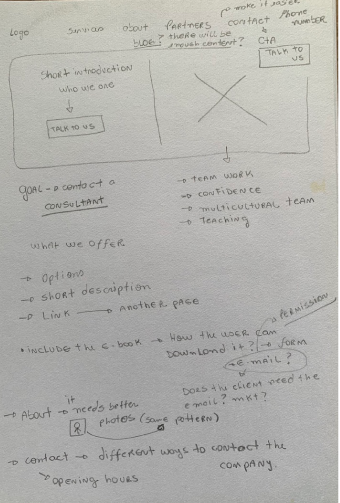 Logo Services about PARTNERS contact Phone number
to make it easier
BLOG? there will be enough content? CTA
TALK TO US
Short introduction
who we are
TALK TO US
GOAL → contact a
CONSULTANT
→ TEAM WORK
→ CONFIDENCE
→ multicultural team
→ Teaching
what we offer
→ Options
→ short description
→ Link → Another page
PERMISSION
• INCLUDE the E-book → How the user can
Download it? → form
→ e-mail?
Does the client need the
email? mkt?
→ About → it needs better
photos (same pattern)
→ contact → different ways to contact the
company.
opening hours